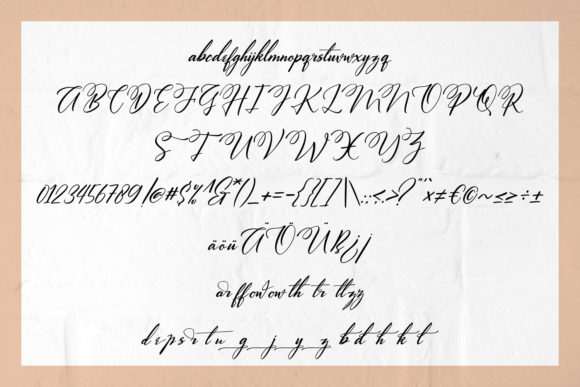 abcdefghijklmnopqrstuvwxyzq
ABCDEFGHIJKLMNOPQR
STUVWXYZ
0123456789!@#$%^&*()_+=-{}[]/|\:;<.>?"'`x≠€©~≤≥÷±
äöüÄÖÜßjj
arffowowth tr ttzz
deprstu g j y z bdhklt